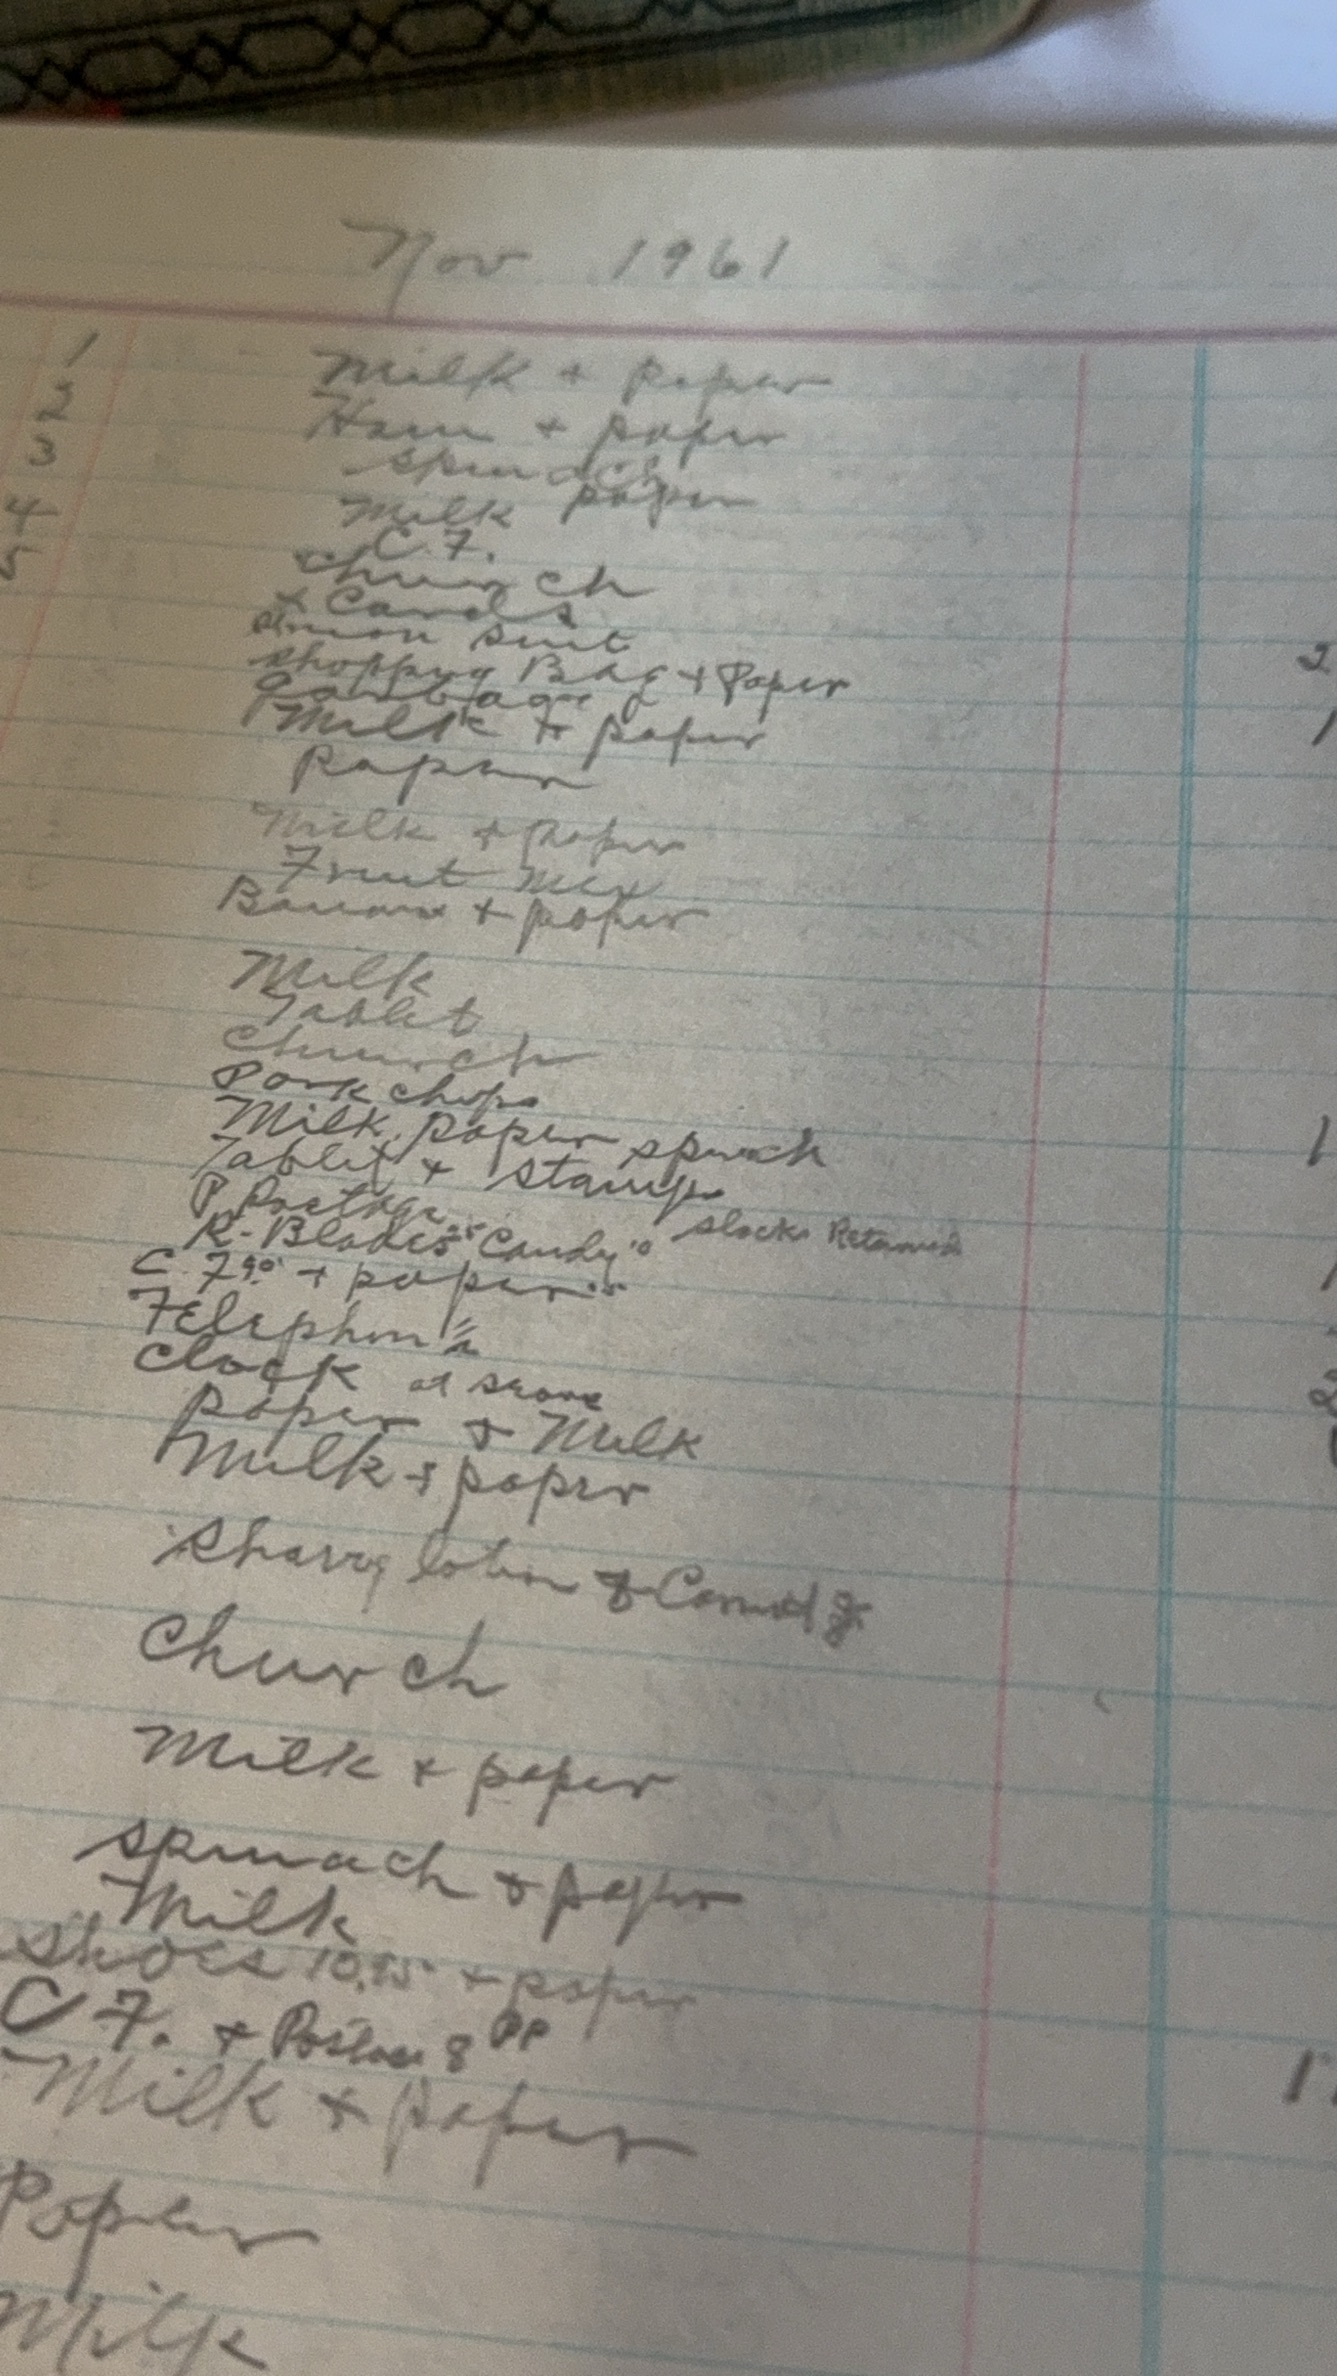 Nov 1961
1 Milk + Paper
2 Ham + paper
3 Spinach
4 Milk paper
5 C. F.
Church
+ Cards
suit
Shopping Bag + Paper 2
Garbage
Milk + paper 1
Paper
Milk + paper
Fruit Mix
Banana + paper
Milk
Tablet
Church
Pork chops
Milk, paper spinach 1
Tablet + stamps
P. Postage
R-Blades Candy 10 Slacks
C. F 90 + paper 1
Telephone
Clock at 2
Paper + Milk
Milk + paper
lotion +
Church
Milk + paper
Spinach + paper
Milk
Shoes 10.95 + paper
C F. + 8 PP
Milk + paper 1
Paper
Milk